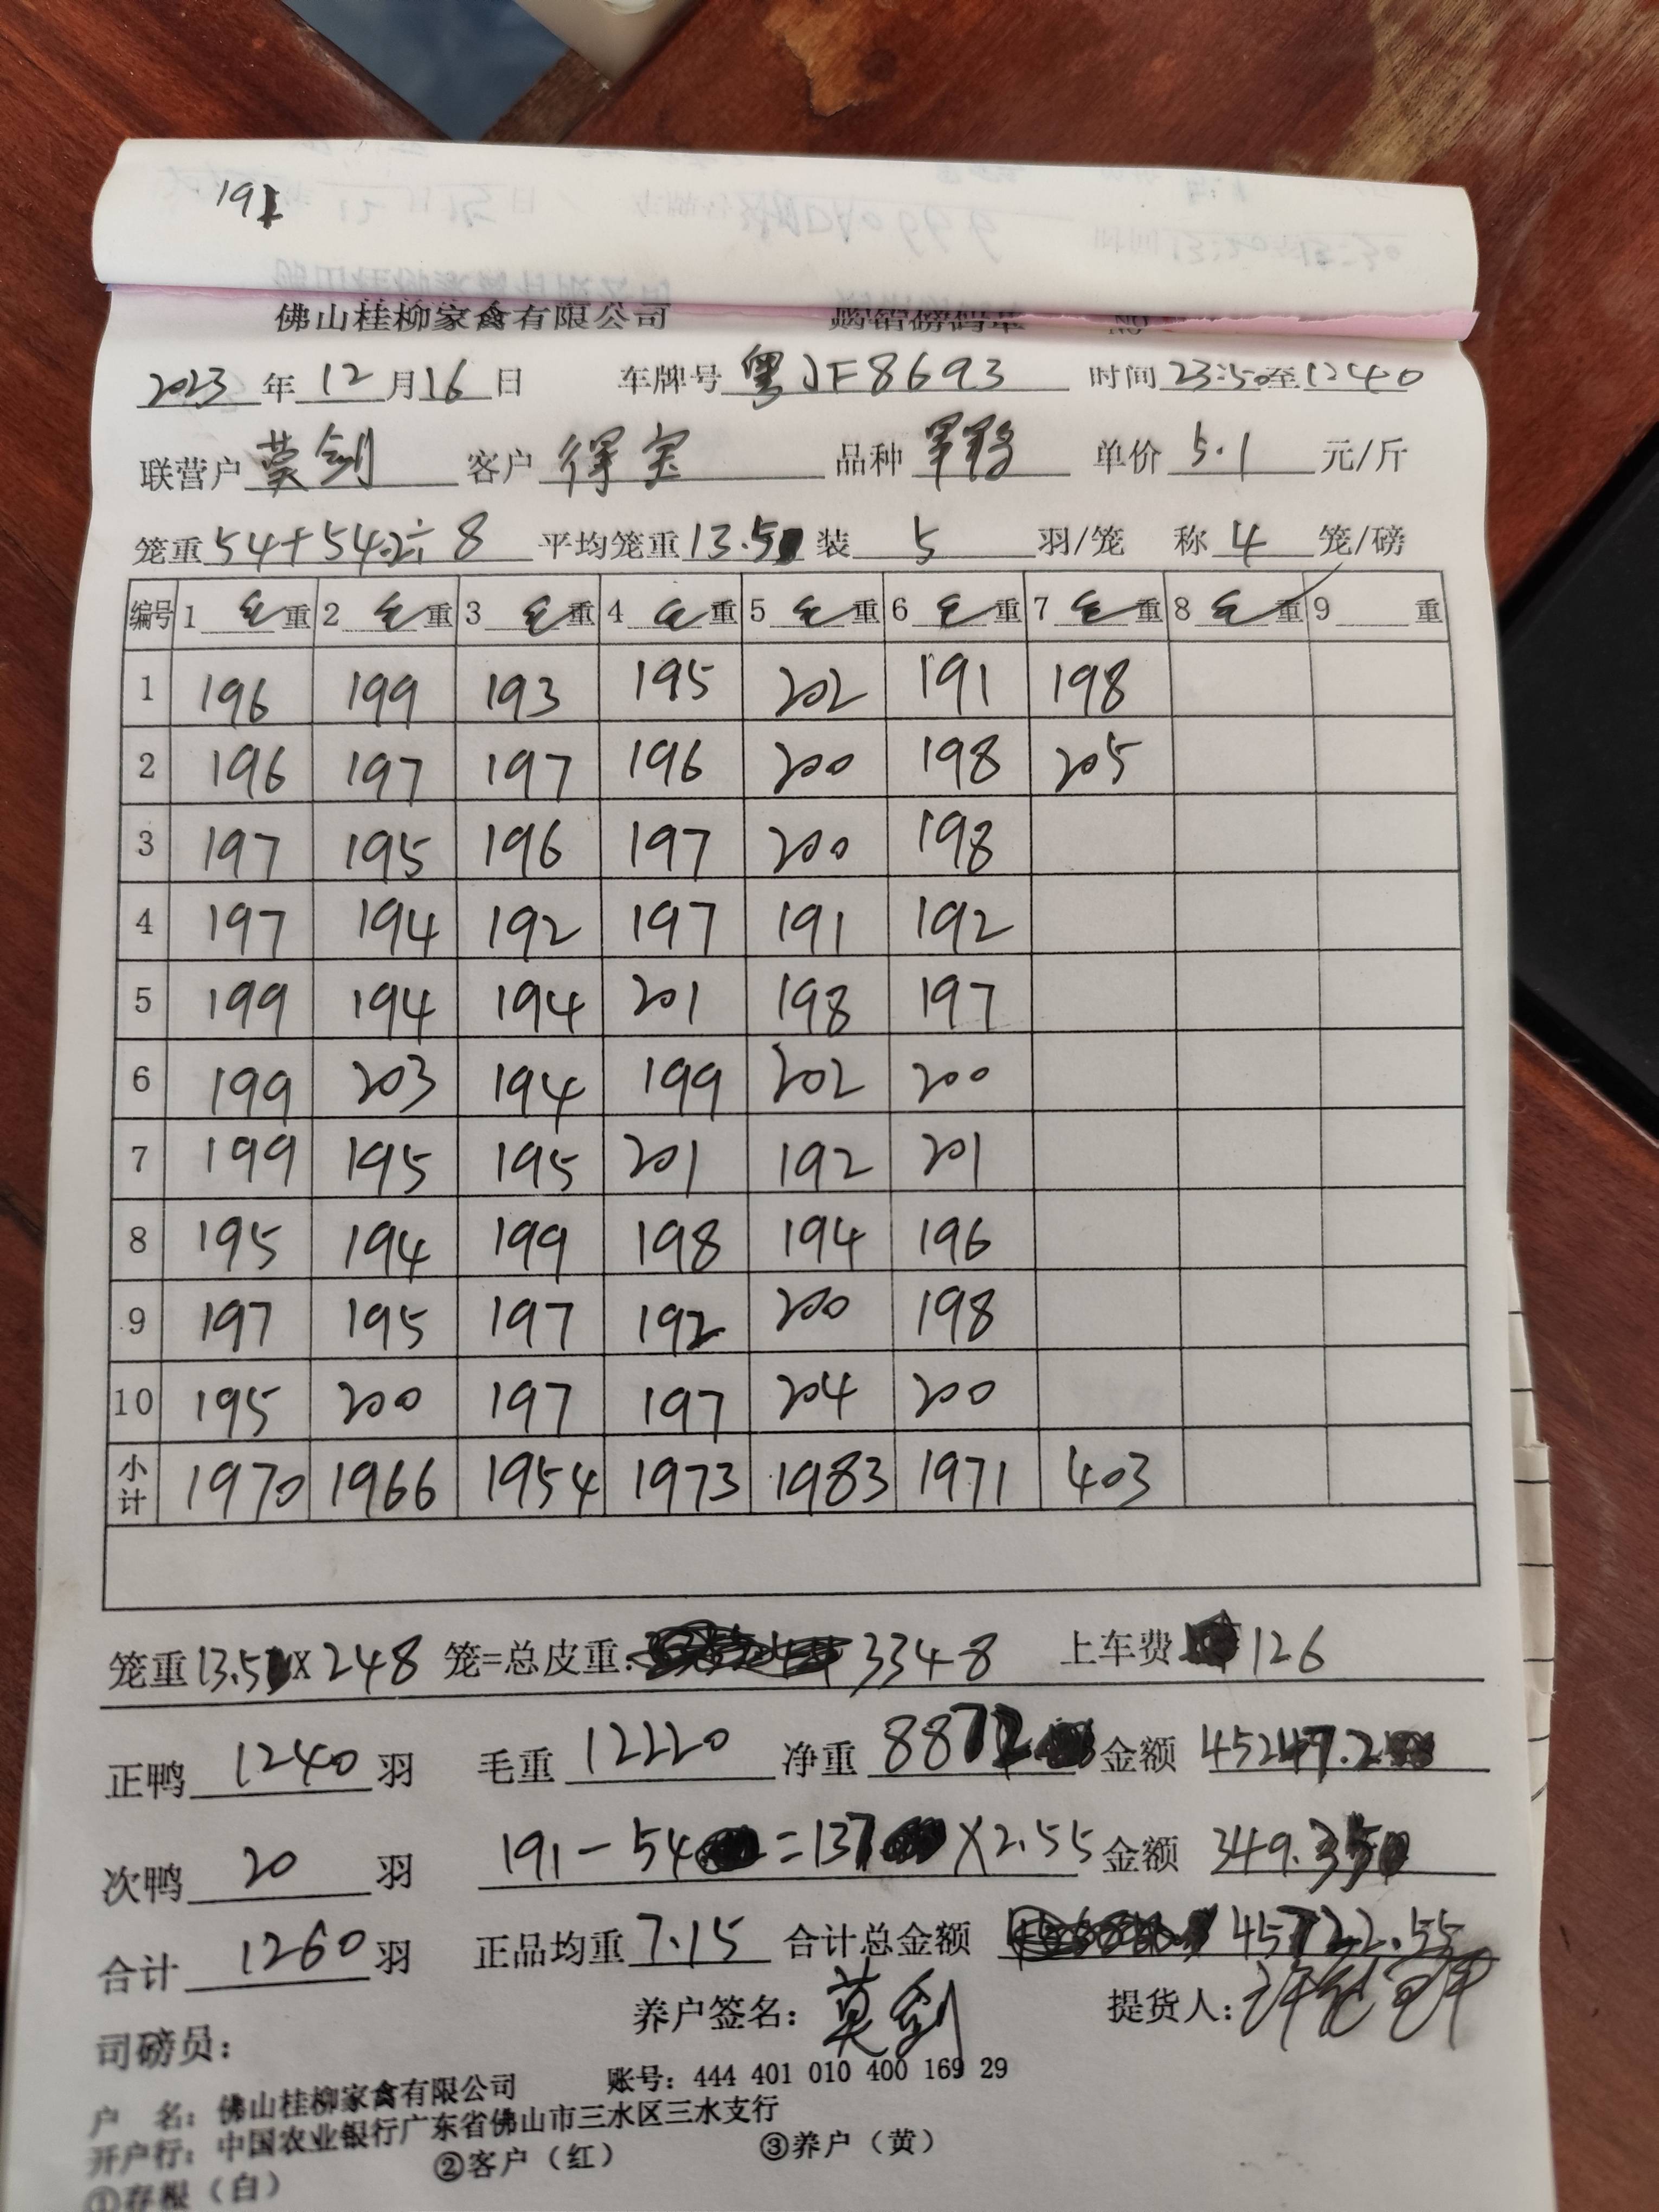 191
佛山桂柳家禽有限公司 购销磅码单 NO
2023 年 12 月 16 日 车牌号 粤JF8693 时间 23:50 至 1240
联营户 莫剑 客户 得宝 品种 单价 5.1 元/斤
笼重 54+54.2÷8 平均笼重 13.5 装 5 羽/笼 称 4 笼/磅
编号 1 毛重 2 毛重 3 毛重 4 毛重 5 毛重 6 毛重 7 毛重 8 毛重 9 重
1 196 199 193 195 202 191 198
2 196 197 197 196 200 198 205
3 197 195 196 197 200 198
4 197 194 192 197 191 192
5 199 194 194 201 198 197
6 199 203 194 199 202 200
7 199 195 195 201 192 201
8 195 194 199 198 194 196
9 197 195 197 192 200 198
10 195 200 197 197 204 200
小计 1970 1966 1954 1973 1983 1971 403
笼重 13.5 X 248 笼=总皮重: 3348 上车费 126
正鸭 1240 羽 毛重 12220 净重 8872 金额 45247.2
次鸭 20 羽 191-54=137 X2.55 金额 349.35
合计 1260 羽 正品均重 7.15 合计总金额 45722.55
养户签名: 莫剑 提货人:
司磅员:
户 名: 佛山桂柳家禽有限公司 账号: 444 401 010 400 169 29
开户行: 中国农业银行广东省佛山市三水区三水支行
①存根（白） ②客户（红） ③养户（黄）